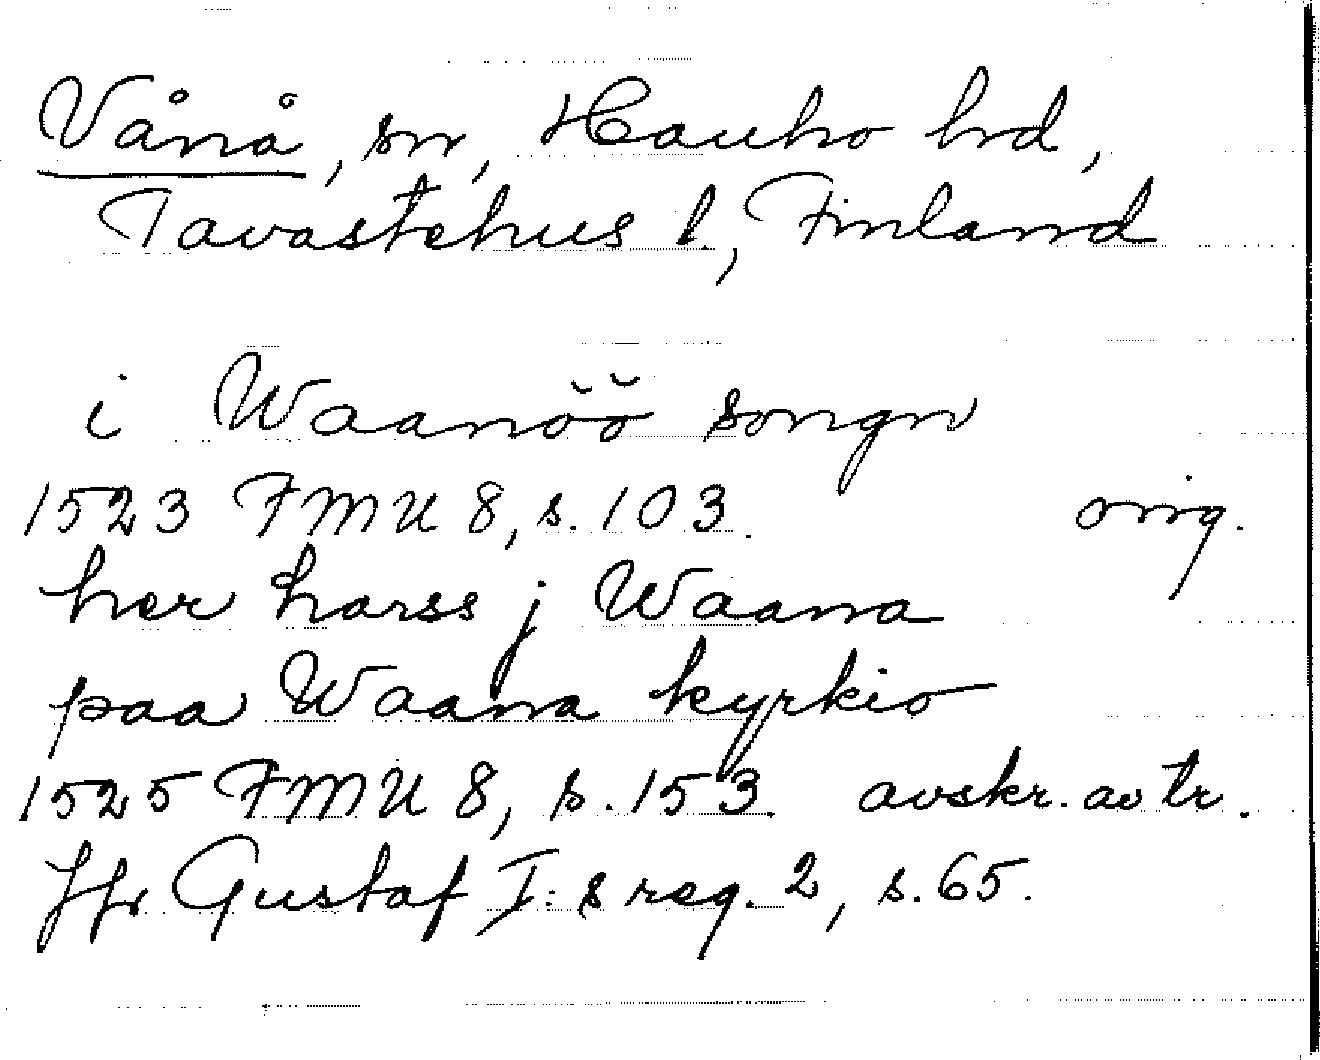 Vånå, sn, Hauho hrd,
Tavastehus l., Finland
i Waanöö songn
1523 FMU 8, s. 103. orig.
her hanss j Waana
paa Waana kyrkio
1525 FMU 8, s. 153. avskr. av tr.
Jfr Gustaf I:s reg. 2, s. 65.